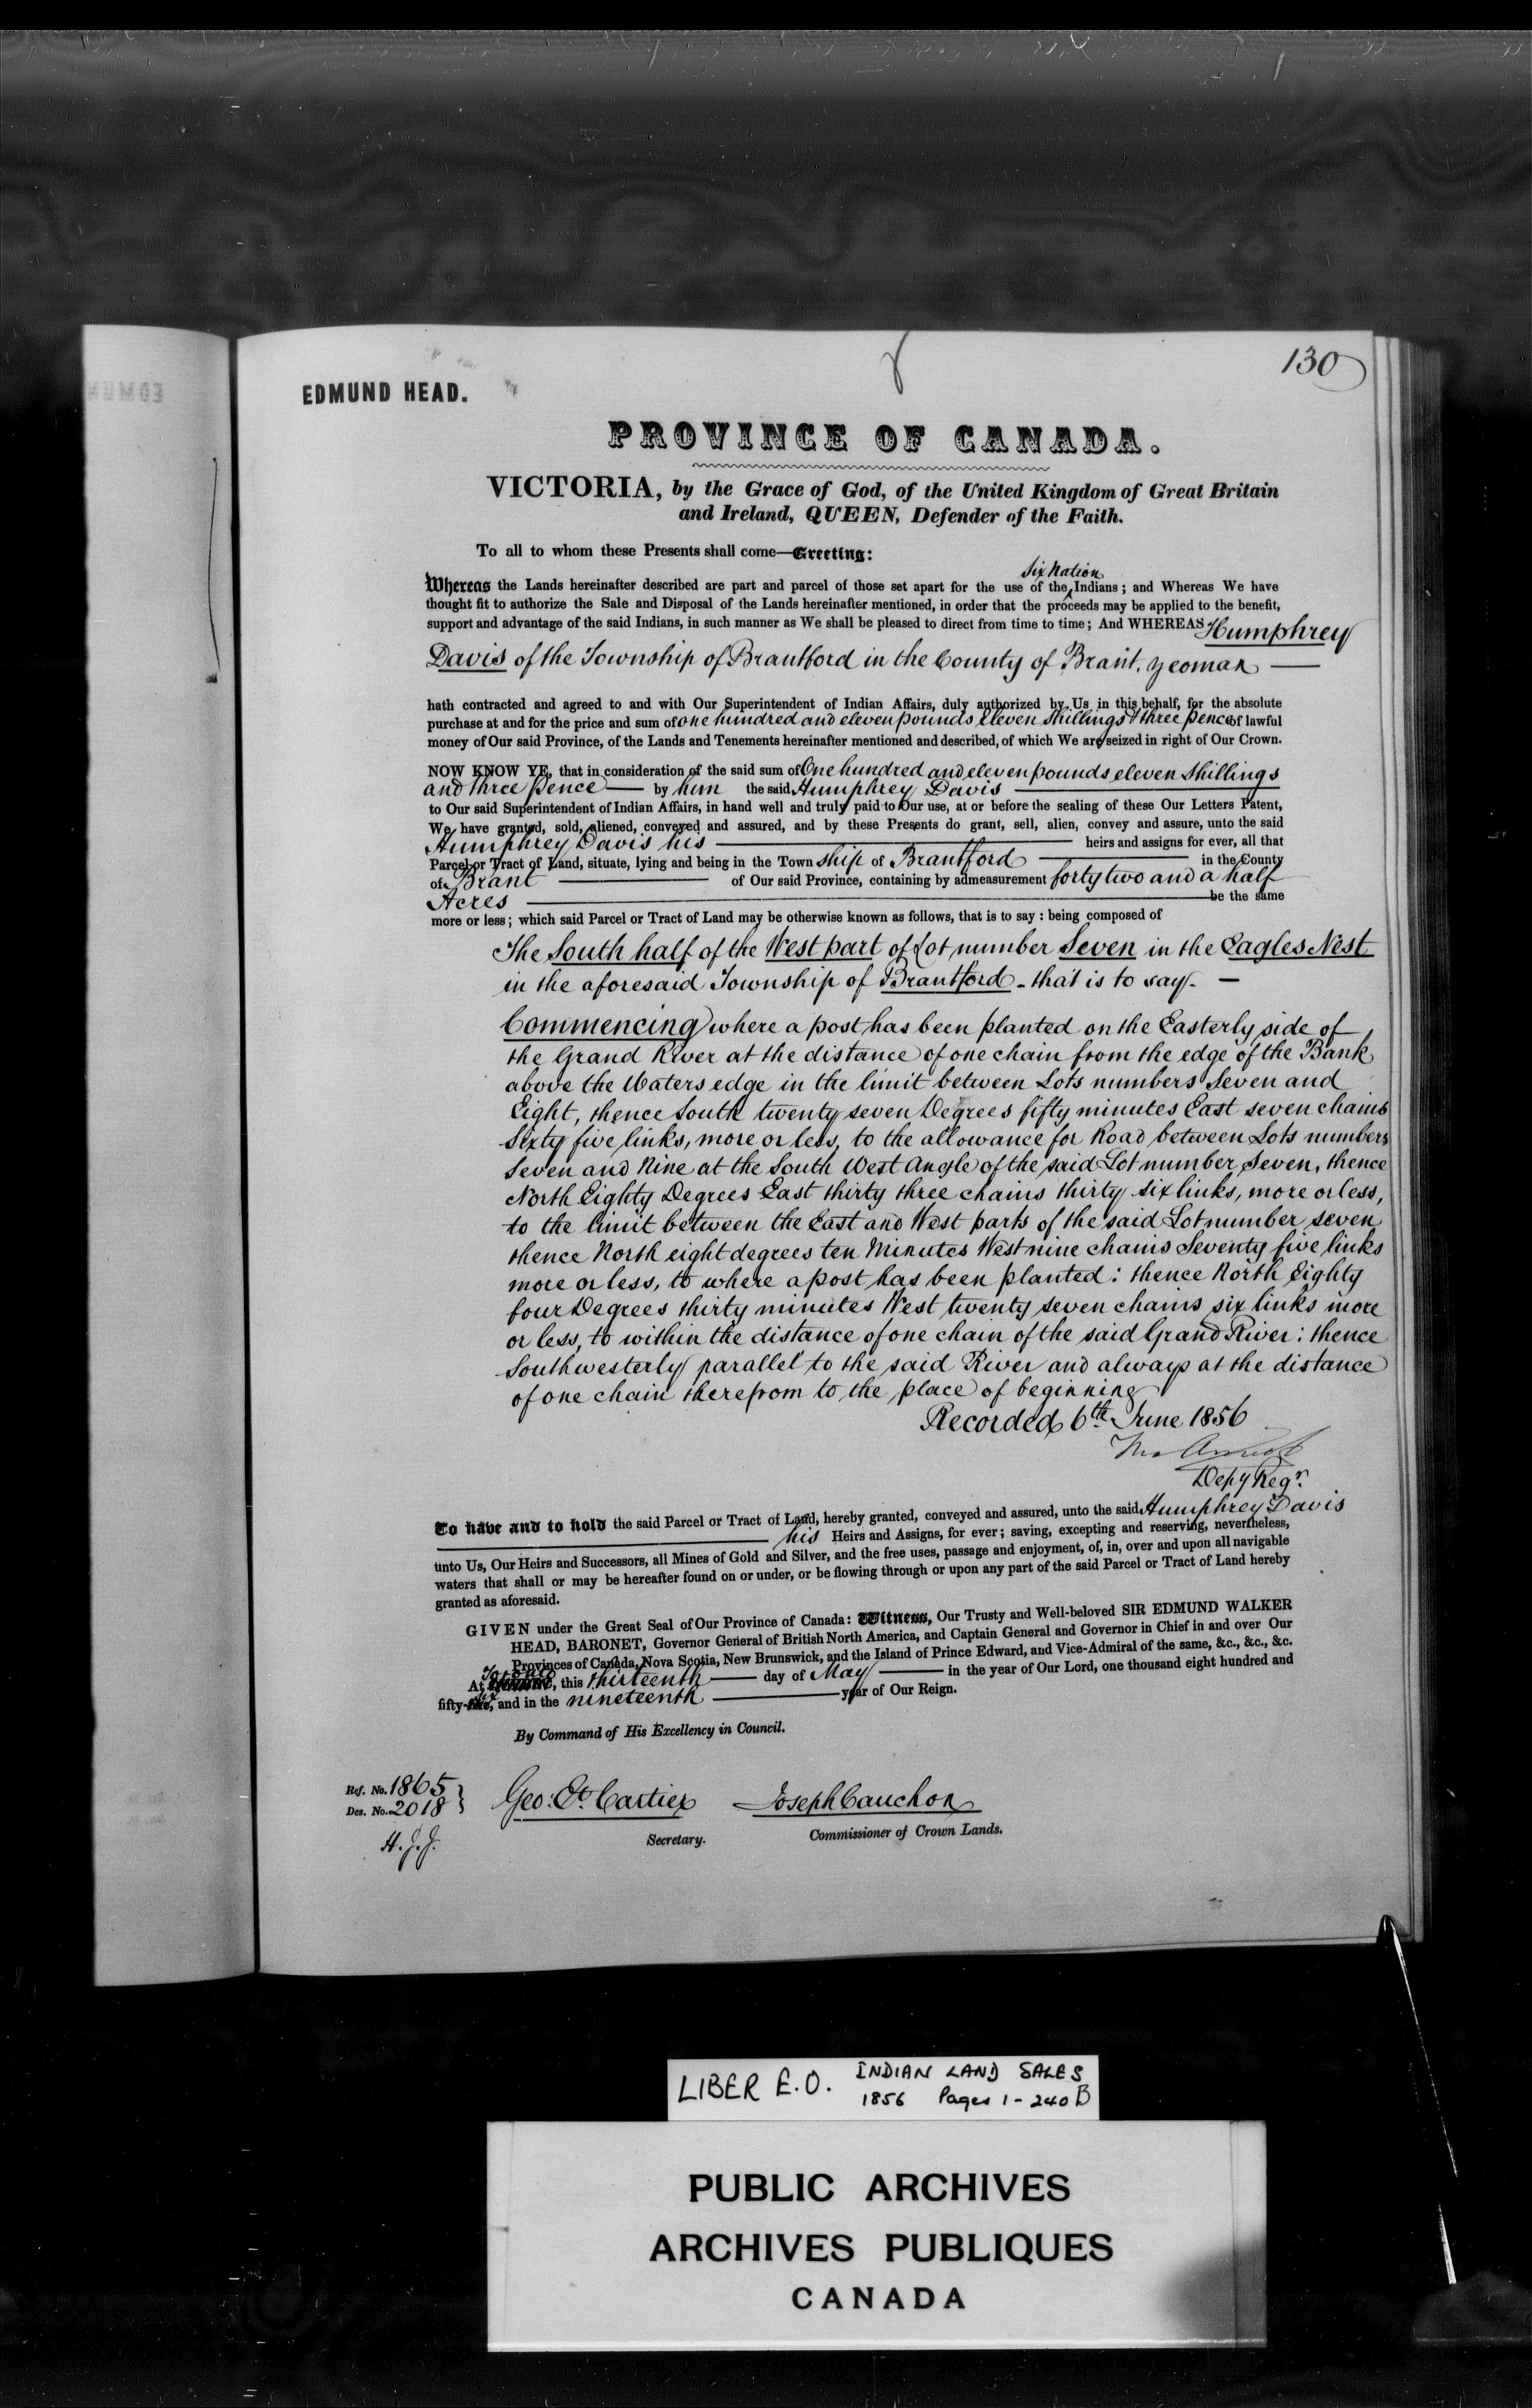 130
EDMUND HEAD.
PROVINCE OF CANADA.
VICTORIA, by the Grace of God, of the United Kingdom of Great Britain
and Ireland, QUEEN, Defender of the Faith.
To all to whom these Presents shall come—Greeting:
Six Nation
Whereas the Lands hereinafter described are part and parcel of those set apart for the use of the Indians; and Whereas We have
thought fit to authorize the Sale and Disposal of the Lands hereinafter mentioned, in order that the proceeds may be applied to the benefit,
support and advantage of the said Indians, in such manner as We shall be pleased to direct from time to time; And WHEREAS Humphrey
Davis of the Township of Brantford in the County of Brant, yeoman —
hath contracted and agreed to and with Our Superintendent of Indian Affairs, duly authorized by Us in this behalf, for the absolute
purchase at and for the price and sum of one hundred and eleven pounds eleven shillings & three pence of lawful
money of Our said Province, of the Lands and Tenements hereinafter mentioned and described, of which We are seized in right of Our Crown.
NOW KNOW YE, that in consideration of the said sum of One hundred and eleven pounds eleven shillings
and three pence — by him the said Humphrey Davis —
to Our said Superintendent of Indian Affairs, in hand well and truly paid to Our use, at or before the sealing of these Our Letters Patent,
We have granted, sold, aliened, conveyed and assured, and by these Presents do grant, sell, alien, convey and assure, unto the said
Humphrey Davis his — heirs and assigns for ever, all that
Parcel or Tract of Land, situate, lying and being in the Town ship of Brantford — in the County
of Brant — of Our said Province, containing by admeasurement forty two and a half
Acres — be the same
more or less; which said Parcel or Tract of Land may be otherwise known as follows, that is to say: being composed of
The South half of the West part of Lot number Seven in the Eagles Nest
in the aforesaid Township of Brantford - that is to say. —
Commencing where a post has been planted on the Easterly side of
the Grand River at the distance of one chain from the edge of the Bank
above the Waters edge in the limit between Lots numbers Seven and
Eight, thence South twenty seven Degrees fifty minutes East seven chains
Sixty five links, more or less, to the allowance for Road between Lots numbers
Seven and Nine at the South West Angle of the said Lot number Seven, thence
North Eighty Degrees East thirty three chains thirty six links, more or less,
to the limit between the East and West parts of the said Lot number seven
thence North eight degrees ten Minutes West nine chains Seventy five links
more or less, to where a post has been planted: thence North Eighty
four Degrees thirty minutes West twenty seven chains six links more
or less, to within the distance of one chain of the said Grand River: thence
Southwesterly parallel to the said River and always at the distance
of one chain therefrom to the place of beginning
Recorded 6th June 1856
Depy Regr.
To have and to hold the said Parcel or Tract of Land, hereby granted, conveyed and assured, unto the said Humphrey Davis
— his Heirs and Assigns, for ever; saving, excepting and reserving, nevertheless,
unto Us, Our Heirs and Successors, all Mines of Gold and Silver, and the free uses, passage and enjoyment, of, in, over and upon all navigable
waters that shall or may be hereafter found on or under, or be flowing through or upon any part of the said Parcel or Tract of Land hereby
granted as aforesaid.
GIVEN under the Great Seal of Our Province of Canada: Witness, Our Trusty and Well-beloved SIR EDMUND WALKER
HEAD, BARONET, Governor General of British North America, and Captain General and Governor in Chief in and over Our
Provinces of Canada, Nova Scotia, New Brunswick, and the Island of Prince Edward, and Vice-Admiral of the same, &c., &c., &c.
At Toronto, this thirteenth — day of May — in the year of Our Lord, one thousand eight hundred and
fifty-six, and in the nineteenth — year of Our Reign.
By Command of His Excellency in Council.
Ref. No. 1865
Des. No. 2018
H.J.J.
Geo: Et. Cartier
Secretary.
Joseph Cauchon
Commissioner of Crown Lands.
LIBER E.O. INDIAN LAND SALES
1856 Pages 1-240B
PUBLIC ARCHIVES
ARCHIVES PUBLIQUES
CANADA